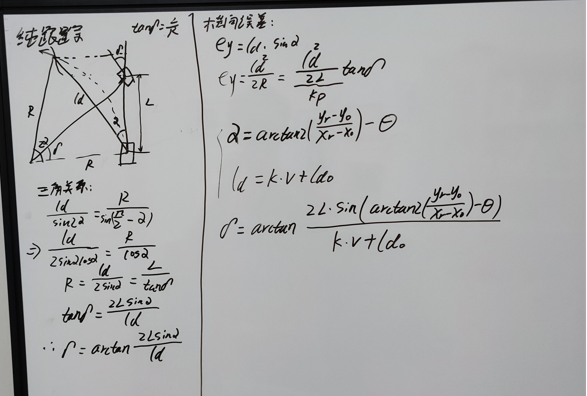 纯跟踪
tanδ=L/R
δ
ld
R
L
α
2α
δ
R
三角关系:
ld/sin2α = R/sin(π/2-α)
⇒ ld/2sinαcosα = R/cosα
R = ld/2sinα = L/tanδ
tanδ = 2Lsinα/ld
∴ δ = arctan 2Lsinα/ld
横向误差:
ey=ld·sinα
ey=ld²/2R = ld²/2L tanδ
kp
α=arctan2(yr-y0/xr-x0)-θ
ld=k·v+ld0
δ=arctan 2L·sin(arctan2(yr-y0/xr-x0)-θ)/k·v+ld0